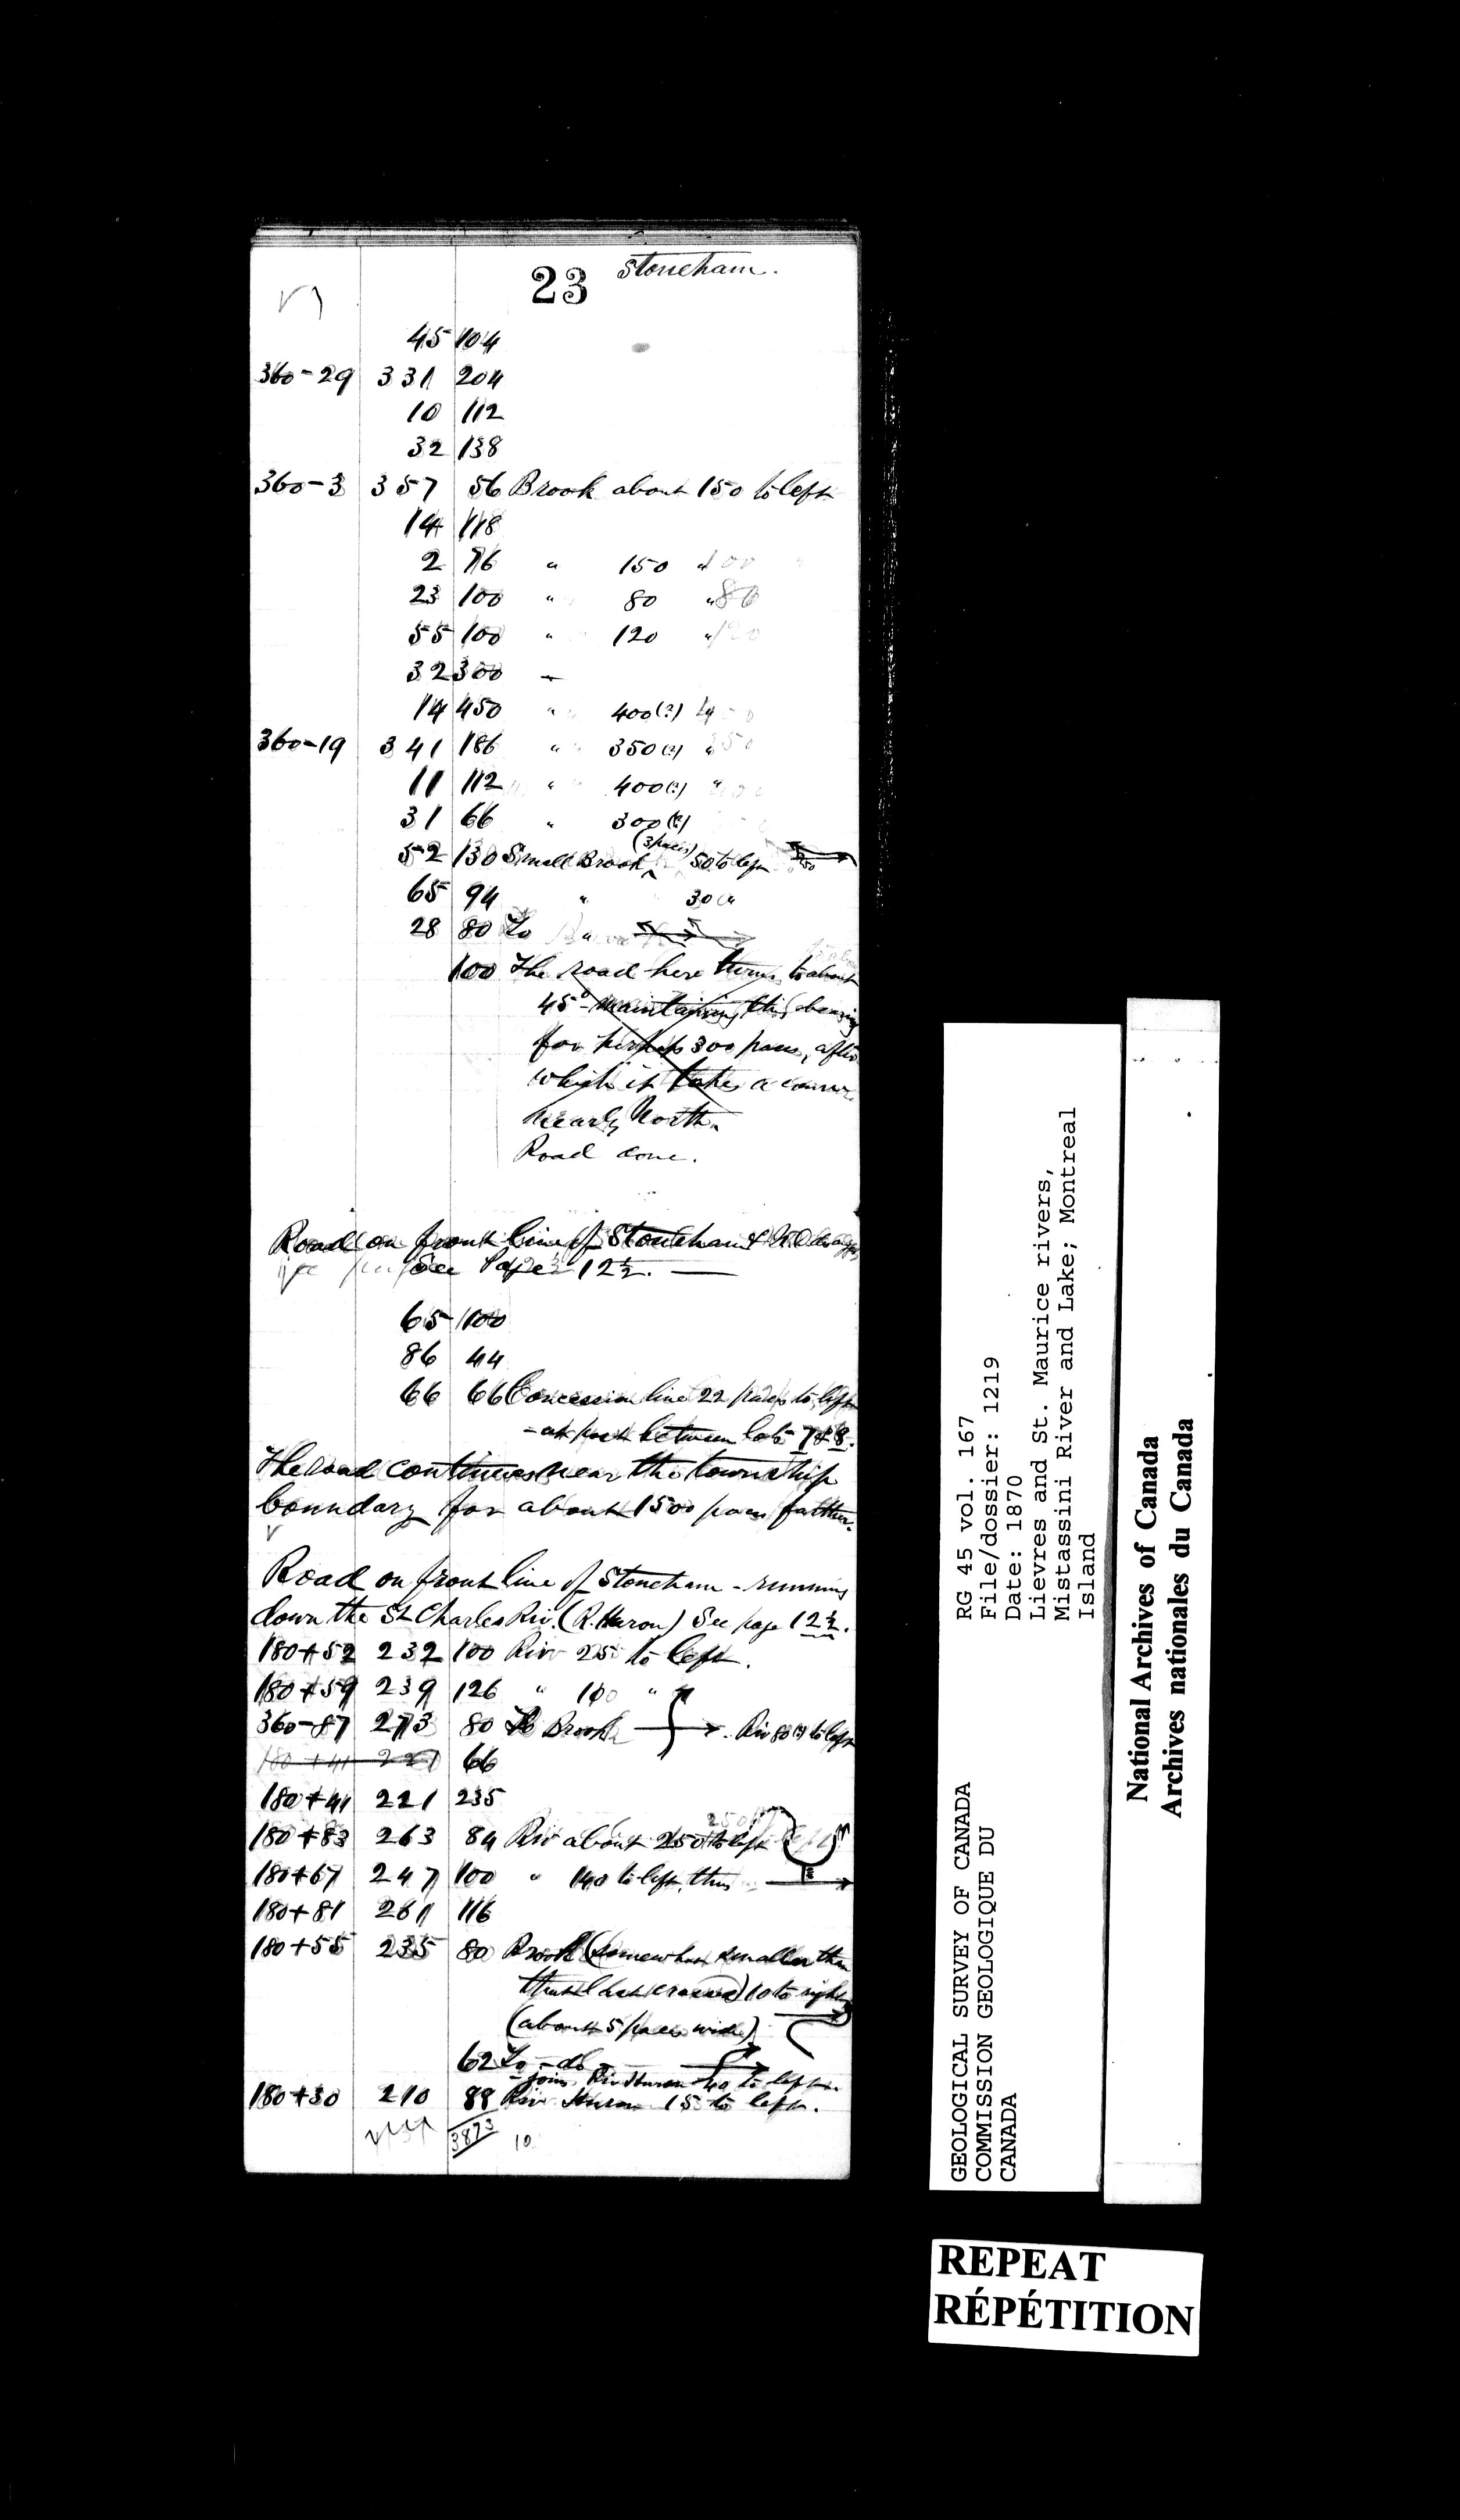 23 Stoneham.
45 104
360-29 331 204
10 112
32 138
360-3 357 56 Brook about 150 to left
14 118
2 76 " 150 "
23 100 " 80 "
55 100 " 120 "
32 300 —
14 450 " 400(?)
360-19 341 186 " 350(?) "
11 112 " 400(?) "
31 66 " 300(?)
52 130 Small Brook (3 paces) 50 to left
65 94 " 30 "
28 80 To "
100 The road here turns to about
45° maintaining this bearing
for perhaps 300 paces, after
which it takes a course
nearly North.
Road done.
Road on front line of Stoneham &
See Page 12½. —
65 100
86 44
66 66 Concession line 22 paces to left
- at post between lots 7 & 8.
The road continues near the township
boundary for about 1500 paces farther.
Road on front line of Stoneham - running
down the St Charles Riv. (R. Huron) See page 12½.
180+52 232 100 Riv 25 to left.
180+59 239 126 " 100 " "
360-87 273 80 To Brook Riv 80(?) to left
180+41 221 66
180+41 221 235
180+83 263 84 Riv about 250 to left
180+67 247 100 " 140 to left, thus
180+81 261 116
180+55 235 80 Brook (somewhat smaller than
that last crossed) 10 to right
(about 5 paces wide)
62 To - do -
- joins Riv Huron 40 to left.
180+30 210 88 Riv Huron 15 to left.
3873 10
GEOLOGICAL SURVEY OF CANADA
COMMISSION GEOLOGIQUE DU
CANADA
RG 45 vol. 167
File/dossier: 1219
Date: 1870
Lievres and St. Maurice rivers,
Mistassini River and Lake; Montreal
Island
National Archives of Canada
Archives nationales du Canada
REPEAT
RÉPÉTITION